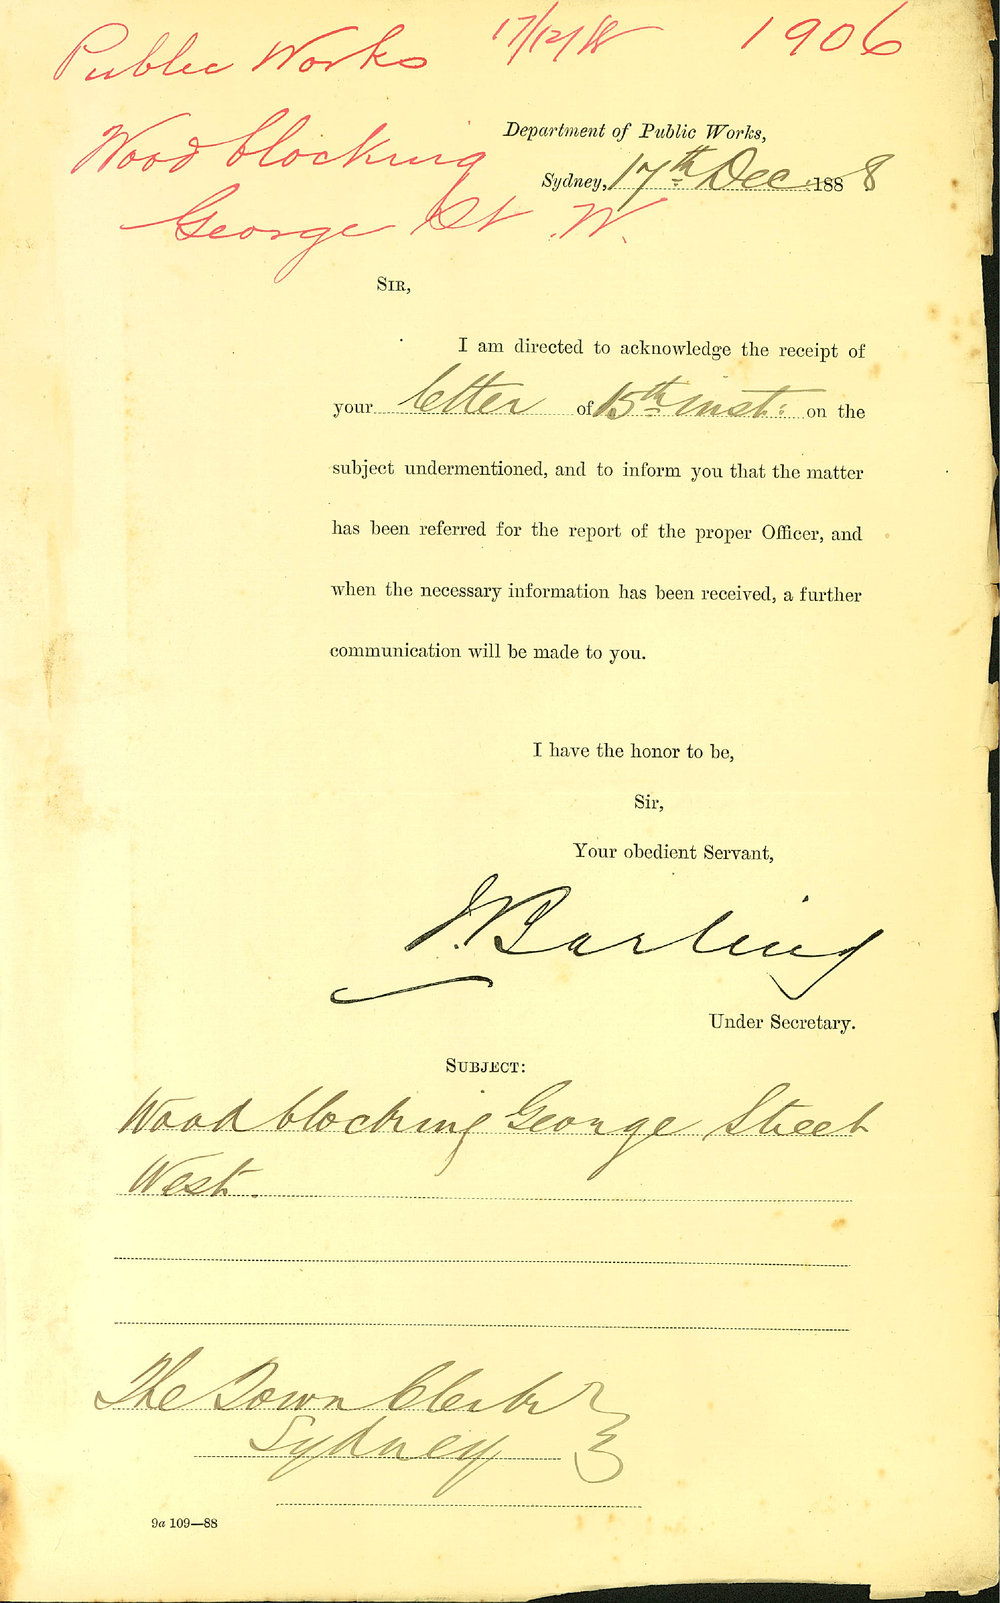 Public Works 17/12/88 1906
Wood blocking
George St W.
Department of Public Works,
Sydney, 17th Dec 1888
SIR,
I am directed to acknowledge the receipt of
your letter of 15th inst: on the
subject undermentioned, and to inform you that the matter
has been referred for the report of the proper Officer, and
when the necessary information has been received, a further
communication will be made to you.
I have the honor to be,
Sir,
Your obedient Servant,
J. Barling
Under Secretary.
SUBJECT:
Wood blocking George Street
West.
The Town Clerk
Sydney
9a 109—88